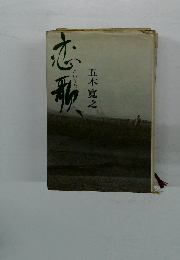 恋歌
五木寛之